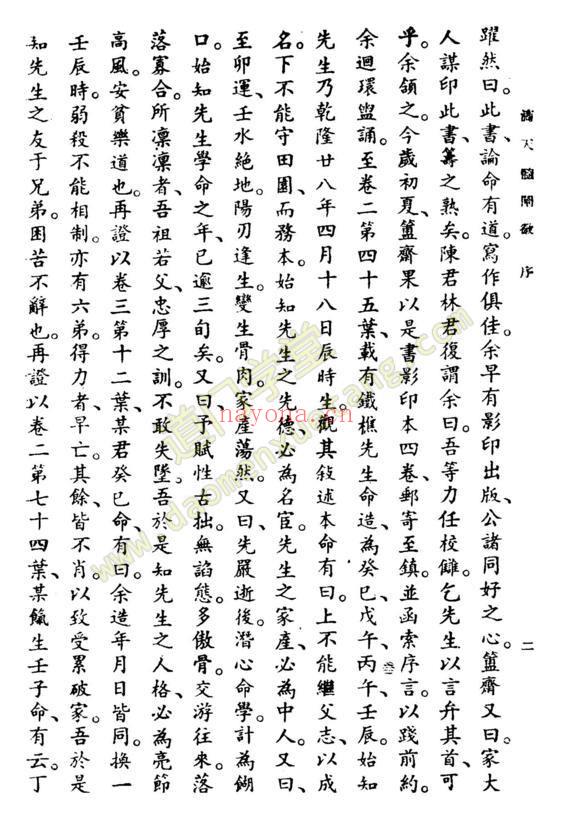 滴天髓闡微 序
二
躍然曰。此書論命有道。寫作俱佳。余早有影印出版、公諸同好之心。簠齋又曰。家大
人謀印此書、籌之熟矣。陳君林君復謂余曰。吾等力任校讎。乞先生以言弁其首、可
乎。余領之。今歲初夏、簠齋果以是書影印本四卷、郵寄至鎮。並函索序言。以踐前約。
余迴環盥誦。至卷二第四十五葉、載有鐵樵先生命造、為癸巳、戊午、丙午、壬辰。始知
先生乃乾隆廿八年四月十八日辰時生。觀其敍述本命有曰。上不能繼父志、以成
名。下不能守田園、而務本。始知先生之先德、必為名宦。先生之家產、必為中人。又曰、
至卯運、壬水絶地。陽刃逢生。變生骨肉。家產蕩然。又曰、先嚴逝後。潛心命學。計為餬
口。始知先生學命之年、已逾三旬矣。又曰予賦性古拙。無諂態。多傲骨。交游往來。落
落寡合。所凜凜者、吾祖若父、忠厚之訓。不敢失墜。吾於是知先生之人格、必為亮節
高風。安貧樂道也。再證以卷三第十二葉、某君癸巳命、有曰。余造年月日皆同。換一
壬辰時。弱殺不能相制。亦有六弟。得力者、早亡。其餘、皆不肖。以致受累破家。吾於是
知先生之友于兄弟。困苦不辭也。再證以卷二第七十四葉、某飢生壬子命、有云。丁
道门学堂
nayona.cn
www.daomenxuetang.com